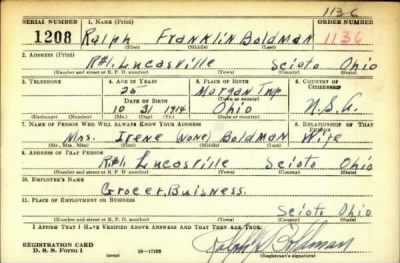 1136
SERIAL NUMBER 1. NAME (Print) ORDER NUMBER
1208 Ralph Franklin Boldman 1136
(First) (Middle) (Last)
2. ADDRESS (Print)
R#1. Lucasville Scioto Ohio
(Number and street or R. F. D. number) (Town) (County) (State)
3. TELEPHONE 4. AGE IN YEARS 5. PLACE OF BIRTH 6. COUNTRY OF CITIZENSHIP
25 Morgan Twp
(Town or county)
DATE OF BIRTH
10 31 1914 Ohio U.S.A.
(Exchange) (Number) (Mo.) (Day) (Yr.) (State or country)
7. NAME OF PERSON WHO WILL ALWAYS KNOW YOUR ADDRESS 8. RELATIONSHIP OF THAT PERSON
Mrs. Irene (None) Boldman Wife
(Mr., Mrs., Miss) (First) (Middle) (Last)
9. ADDRESS OF THAT PERSON
R#1. Lucasville Scioto Ohio
(Number and street or R. F. D. number) (Town) (County) (State)
10. EMPLOYER'S NAME
Grocer, Buisness.
11. PLACE OF EMPLOYMENT OR BUSINESS
Scioto Ohio
(Number and street or R. F. D. number) (Town) (County) (State)
I AFFIRM THAT I HAVE VERIFIED ABOVE ANSWERS AND THAT THEY ARE TRUE.
REGISTRATION CARD
D. S. S. Form 1 16—17105 (Registrant's signature)